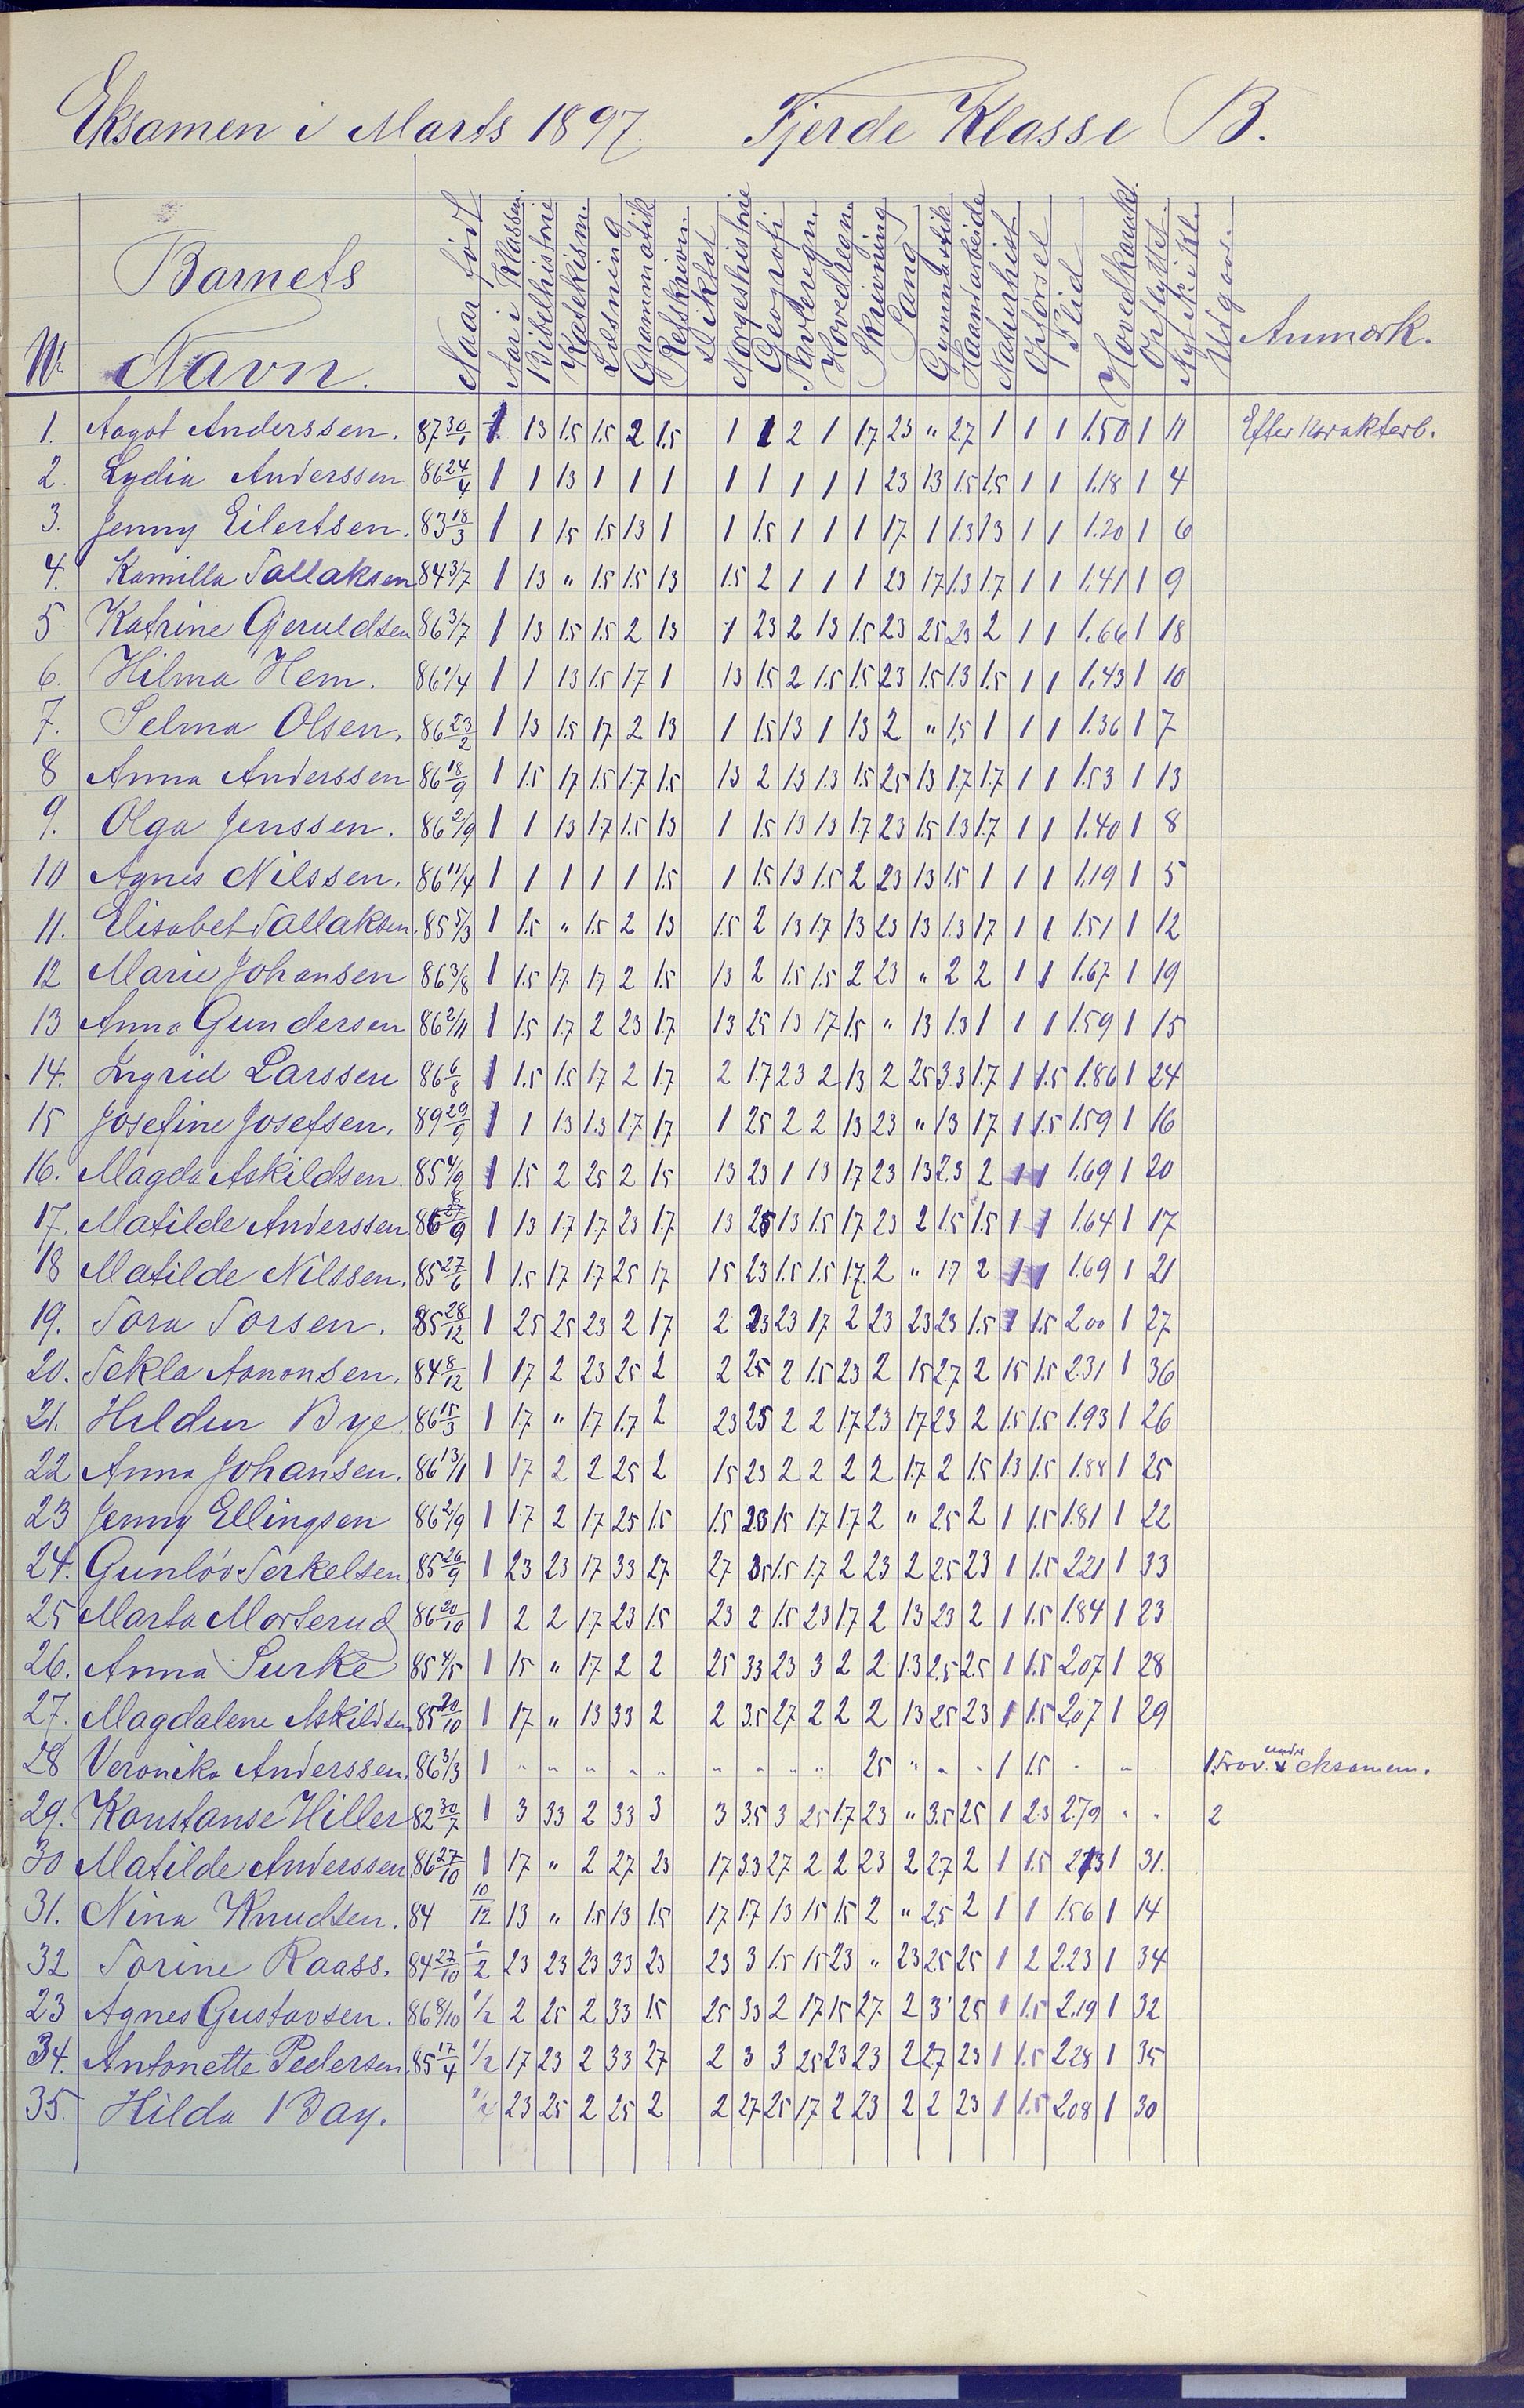 Eksamen i Marts 1897. Fjerde Klasse B.
Nr. Barnets Navn. Naar født Aar i Klassen. Bibelhistorie Katekism. Læsning Grammatik Retskrivn. Diktat Norgeshistorie Geografi Tavleregn. Hovedregn. Skrivning Sang Gymnastik Haandarbeide Naturhist. Opførsel Flid Hovedkarakt. Opflyttet Nyt № i Kl. Udgaar. Anmærk.
1. Aagot Anderssen. 87 30/1 1 13 1.5 1.5 2 1.5 1 1 2 1 1.7 23 " 27 1 1 1 1.50 1 11 Efter karakterb.
2. Lydia Anderssen 86 24/4 1 1 13 1 1 1 1 1 1 1 1 23 13 1.5 1.5 1 1 1.18 1 4
3. Jenny Eilertsen. 83 18/3 1 1 15 1.5 13 1 1 1.5 1 1 1 17 1 1.3 13 1 1 1.20 1 6
4. Kamilla Tallaksen 84 3/7 1 13 " 1.5 1.5 13 1.5 2 1 1 1 23 17 1.3 1.7 1 1 1.41 1 9
5 Katrine Gjeruldsen 86 3/7 1 13 1.5 1.5 2 13 1 23 2 13 1.5 23 25 23 2 1 1 1.66 1 18
6. Hilma Hem. 86 1/4 1 1 13 1.5 17 1 13 1.5 2 1.5 1.5 23 1.5 1.3 1.5 1 1 1.43 1 10
7. Selma Olsen. 86 23/2 1 13 1.5 17 2 13 1 1.5 13 1 13 2 " 1.5 1 1 1 1.36 1 7
8 Anna Anderssen 86 18/9 1 1.5 17 1.5 1.7 1.5 13 2 13 1.3 1.5 25 13 1.7 1.7 1 1 1.53 1 13
9. Olga Jenssen. 86 2/9 1 1 13 1.7 1.5 13 1 1.5 13 13 1.7 23 1.5 1.3 1.7 1 1 1.40 1 8
10 Agnes Nilssen. 86 11/4 1 1 1 1 1 1.5 1 1.5 13 1.5 2 23 13 1.5 1 1 1 1.19 1 5
11. Elisabet Tallaksen. 85 5/3 1 1.5 " 1.5 2 13 1.5 2 13 1.7 13 23 13 1.3 17 1 1 1.51 1 12
12 Marie Johansen 86 3/8 1 1.5 17 17 2 1.5 13 2 1.5 1.5 2 23 " 2 2 1 1 1.67 1 19
13 Anna Gundersen 86 2/11 1 1.5 1.7 2 23 1.7 13 25 13 17 1.5 " 13 1.3 1 1 1 1.59 1 15
14. Ingrid Larssen 86 6/8 1 1.5 1.5 17 2 1.7 2 1.7 23 2 13 2 25 3.3 1.7 1 1.5 1.86 1 24
15 Josefine Josefsen. 89 29/9 1 1 13 1.3 1.7 17 1 25 2 2 13 23 " 13 17 1 1.5 1.59 1 16
16. Magda Askildsen. 85 4/9 1 1.5 2 25 2 15 13 23 1 13 1.7 23 13 2.3 2 1 1 1.69 1 20
17. Matilde Anderssen 86 /9 1 13 1.7 1.7 23 1.7 13 25 13 1.5 17 23 2 1.5 1.5 1 1 1.64 1 17
18 Matilde Nilssen. 85 27/6 1 1.5 17 17 25 17 15 23 1.5 1.5 17 2 " 1.7 2 1 1 1.69 1 21
19. Tora Torsen. 85 28/12 1 25 25 23 2 17 2 23 23 17 2 23 23 23 1.5 1 1.5 2.00 1 27
20. Tekla Aanonsen. 84 8/12 1 1.7 2 23 25 2 2 25 2 1.5 23 2 15 27 2 15 1.5 2.31 1 36
21. Hildur Bye. 86 15/3 1 17 " 17 1.7 2 23 25 2 2 17 23 17 23 2 1.5 1.5 1.93 1 26
22 Anna Johansen. 86 13/11 1 17 2 2 25 2 15 23 2 2 2 2 1.7 2 1.5 13 1.5 1.88 1 25
23 Jenny Ellingsen 86 2/9 1 1.7 2 17 25 1.5 1.5 23 15 1.7 1.7 2 " 25 2 1 1.5 1.81 1 22
24. Gunløv Terkelsen. 85 26/9 1 23 23 17 33 27 27 35 1.5 1.7 2 23 2 2.5 23 1 1.5 2.21 1 33
25 Marta Morterud 86 20/10 1 2 2 1.7 23 1.5 23 2 1.5 23 1.7 2 13 23 2 1 1.5 1.84 1 23
26. Anna Surke 85 4/5 1 15 " 1.7 2 2 25 33 23 3 2 2 1.3 2.5 2.5 1 1.5 2.07 1 28
27. Magdalene Askildsen 85 20/10 1 17 " 13 33 2 2 3.5 27 2 2 2 13 25 23 1 1.5 2.07 1 29
28 Veronika Anderssen. 86 3/3 1 " " " " " " " " " 25 " " " 1 1.5 " " 1 Frav. under eksamen.
29. Konstanse Hiller 82 30/7 1 3 33 2 33 3 3 3.5 3 25 1.7 23 " 3.5 25 1 2.3 2.79 " " 2
30 Matilde Anderssen 86 27/10 1 17 " 2 27 23 17 3.3 27 2 2 23 2 27 2 1 1.5 2.13 1 31.
31. Nina Knudsen. 84 10/12 13 " 1.5 13 1.5 17 1.7 13 15 1.5 2 " 2.5 2 1 1 1.56 1 14
32 Torine Raass. 84 27/10 1/2 23 23 23 33 23 23 3 1.5 15 23 " 23 25 25 1 2 2.23 1 34
23 Agnes Gustavsen. 86 8/10 1/2 2 25 2 33 1.5 25 33 2 17 15 27 2 3 25 1 1.5 2.19 1 32
34. Antonette Pedersen. 85 17/4 1/2 17 23 2 33 27 2 3 3 25 23 23 2 27 23 1 1.5 2.28 1 35
35. Hilda Bay. 1/4 23 25 2 25 2 2 27 25 17 2 23 2 2 23 1 1.5 2.08 1 30